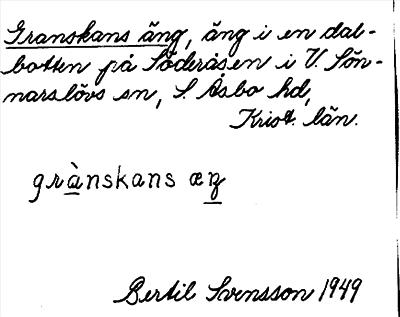 Granskans äng, äng i en dal-
botten på Söderåsen i V. Sön-
narslövs sn, S. Åsbo hd,
Krist. län.
grànskans æŋ
Bertil Svensson 1949